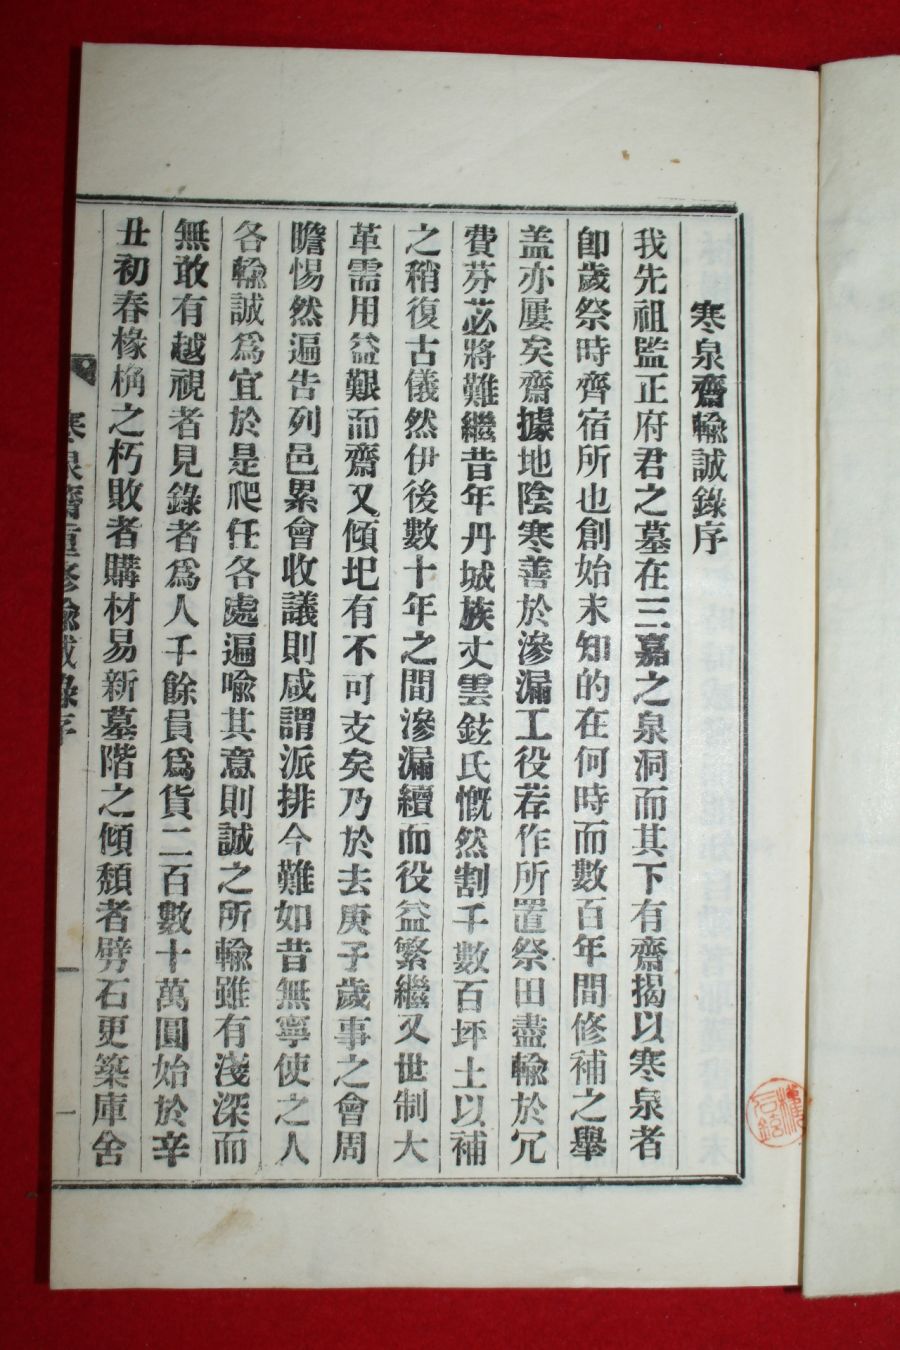 寒泉齋輸誠錄序
我先祖監正府君之墓在三嘉之泉洞而其下有齋揭以寒泉者
卽歲祭時齊宿所也創始未知的在何時而數百年間修補之擧
盖亦屢矣齋據地陰寒善於滲漏工役荐作所置祭田盡輸於冗
費芬苾將難繼昔年丹城族丈雲鉉氏慨然割千數百坪土以補
之稍復古儀然伊後數十年之間滲漏續而役益繁繼又世制大
革需用益艱而齋又傾圯有不可支矣乃於去庚子歲事之會周
瞻惕然遍告列邑累會收議則咸謂派排今難如昔無寧使之人
各輸誠爲宜於是爬任各處遍喩其意則誠之所輸雖有淺深而
無敢有越視者見錄者爲人千餘員爲貨二百數十萬圓始於辛
丑初春椽桷之朽敗者購材易新墓階之傾頹者劈石更築庫舍
寒泉齋重修輸誠錄序
一